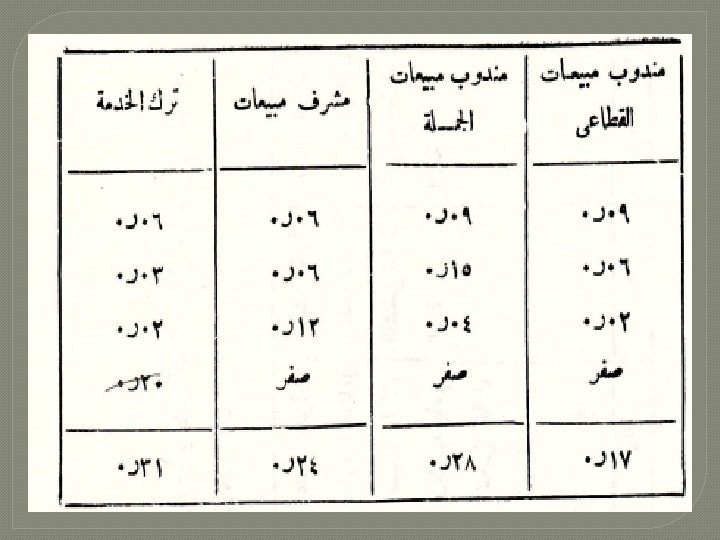 مندوب مبيعات القطاعى
مندوب مبيعات الجملة
مشرف مبيعات
ترك الخدمة
٠٩ر٠ ٠٩ر٠ ٠٦ر٠ ٠٦ر٠
٠٦ر٠ ١٥ر٠ ٠٦ر٠ ٠٣ر٠
٠٢ر٠ ٠٤ر٠ ١٢ر٠ ٠٢ر٠
صفر صفر صفر ٢٠ر٠
١٧ر٠ ٢٨ر٠ ٢٤ر٠ ٣١ر٠